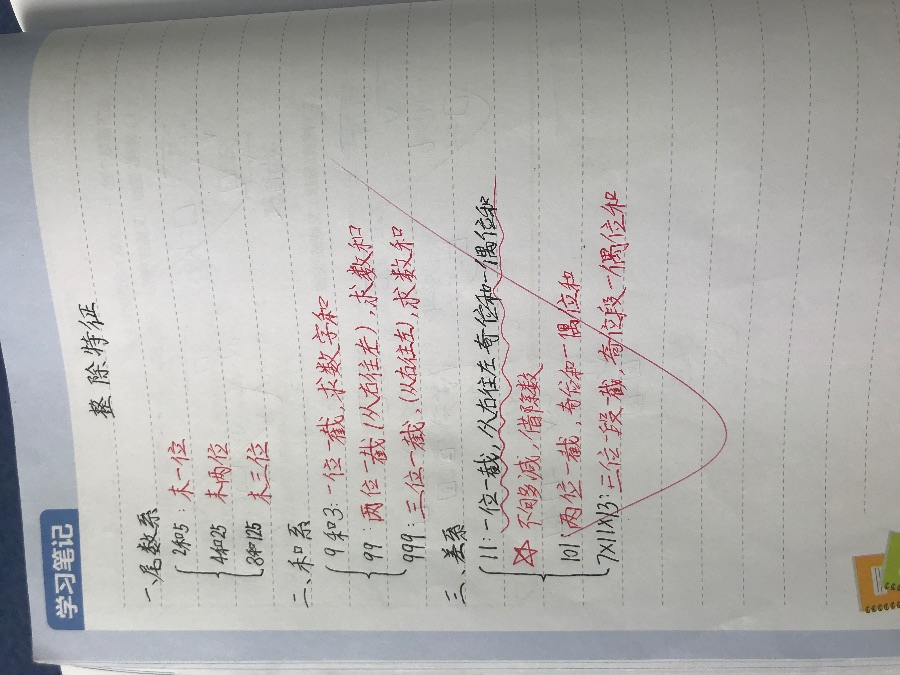 学习笔记
整除特征
一、尾数系
2和5：末一位
4和25 末两位
8和125 末三位
二、和系
9和3：一位一截，求数字和
99：两位一截（从右往左），求数和
999：三位一截，（从右往左），求数和
三、差系
11：一位一截，从右往左奇位和－偶位和
不够减，借除数
101：两位一截，奇位和－偶位和
7×11×13：三位一段截，奇位段－偶位和